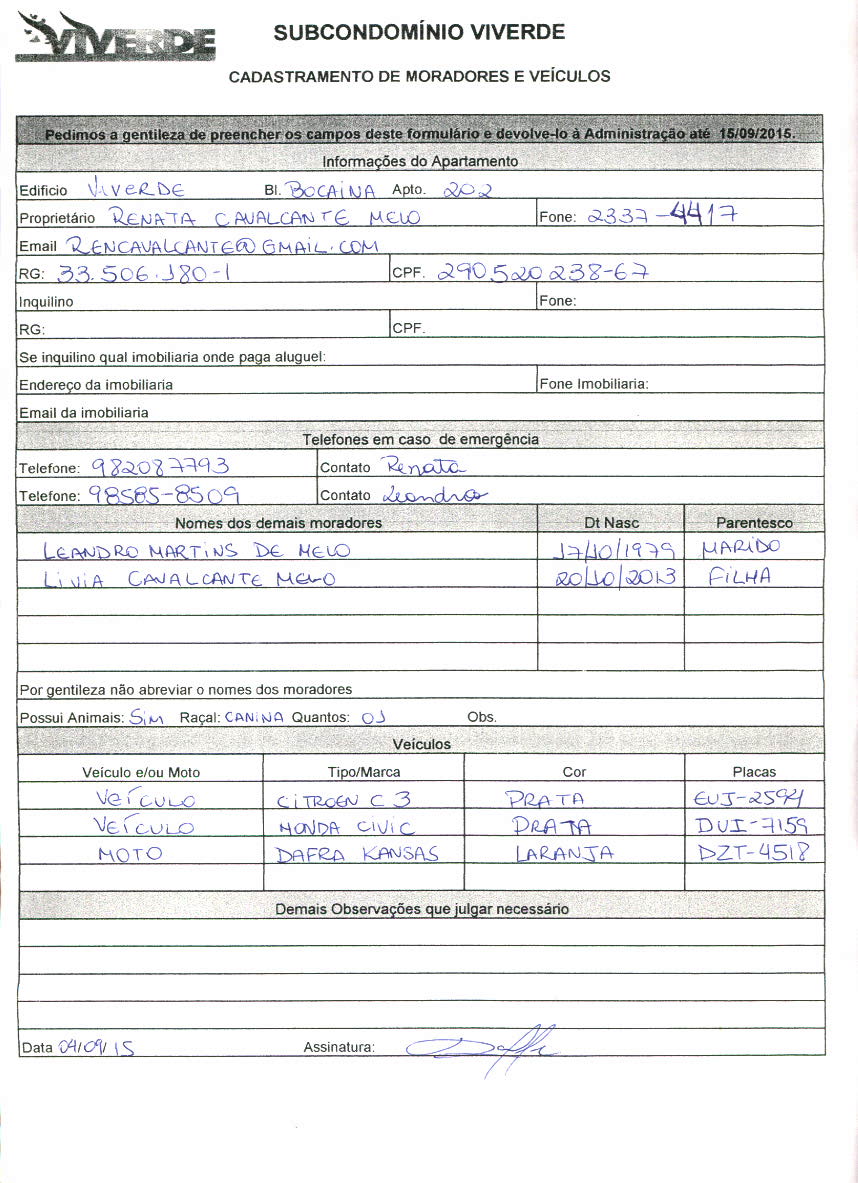 VIVERDE
SUBCONDOMÍNIO VIVERDE
CADASTRAMENTO DE MORADORES E VEÍCULOS
Pedimos a gentileza de preencher os campos deste formulário e devolve-lo à Administração até 15/09/2015.
Informações do Apartamento
Edificio VIVERDE Bl. BOCAINA Apto. 202
Proprietário RENATA CAVALCANTE MELO Fone: 2337-4417
Email RENCAVALCANTE@GMAIL.COM
RG: 33.506.180-1 CPF. 290520238-67
Inquilino Fone:
RG: CPF.
Se inquilino qual imobiliaria onde paga aluguel:
Endereço da imobiliaria Fone Imobiliaria:
Email da imobiliaria
Telefones em caso de emergência
Telefone: 982087793 Contato Renata
Telefone: 98585-8509 Contato Leandro
Nomes dos demais moradores Dt Nasc Parentesco
LEANDRO MARTINS DE MELO 17/10/1979 MARIDO
LIVIA CAVALCANTE MELO 20/10/2013 FILHA
Por gentileza não abreviar o nomes dos moradores
Possui Animais: SIM Raçal: CANINA Quantos: 01 Obs.
Veículos
Veículo e/ou Moto Tipo/Marca Cor Placas
VEÍCULO CITROEN C3 PRATA EUJ-2594
VEÍCULO HONDA CIVIC PRATA DUI-7159
MOTO DAFRA KANSAS LARANJA DZT-4518
Demais Observações que julgar necessário
Data 04/09/15 Assinatura: